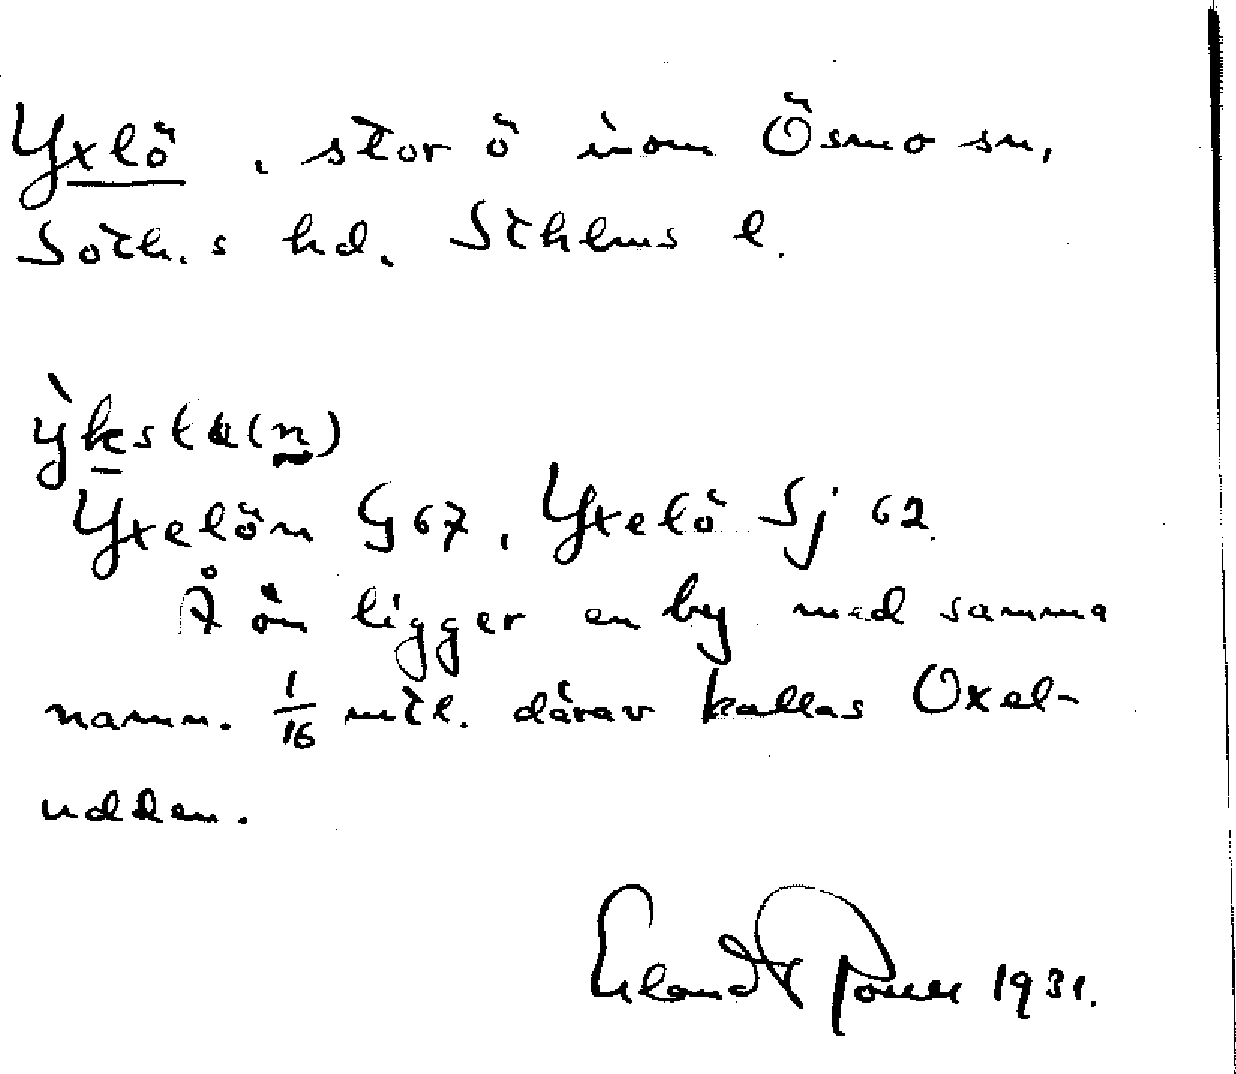 Yxlö, stor ö inom Ösmo sn,
Soth.s hd. Sthlms l.
Yxelön G 67, Yxelö Sj 62.
Å ön ligger en by med samma
namn. 1/16 mtl. därav kallas Oxel-
udden.
Erland 1931.